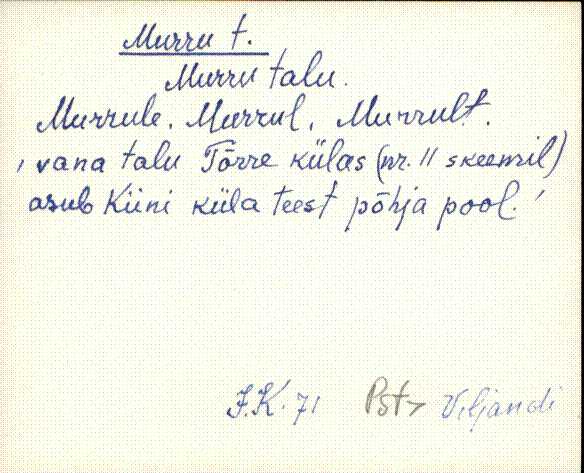 Murru t.
Murru talu.
Murrule. Murrul. Murrult.
, vana talu Tõrre külas (nr. 11 skeemil)
asub Küni küla teest põhja pool.'
J.K. 71 Pst Viljandi